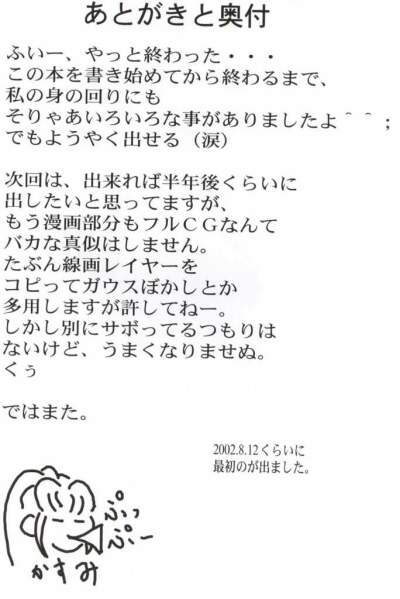 あとがきと奥付
ふいー、やっと終わった・・・
この本を書き始めてから終わるまで、
私の身の回りにも
そりゃあいろいろな事がありましたよ＾＾；
でもようやく出せる（涙）
次回は、出来れば半年後くらいに
出したいと思ってますが、
もう漫画部分もフルＣＧなんて
バカな真似はしません。
たぶん線画レイヤーを
コピってガウスぼかしとか
多用しますが許してねー。
しかし別にサボってるつもりは
ないけど、うまくなりませぬ。
くぅ
ではまた。
2002.8.12くらいに
最初のが出ました。
ぷっ
ぷー
かすみ